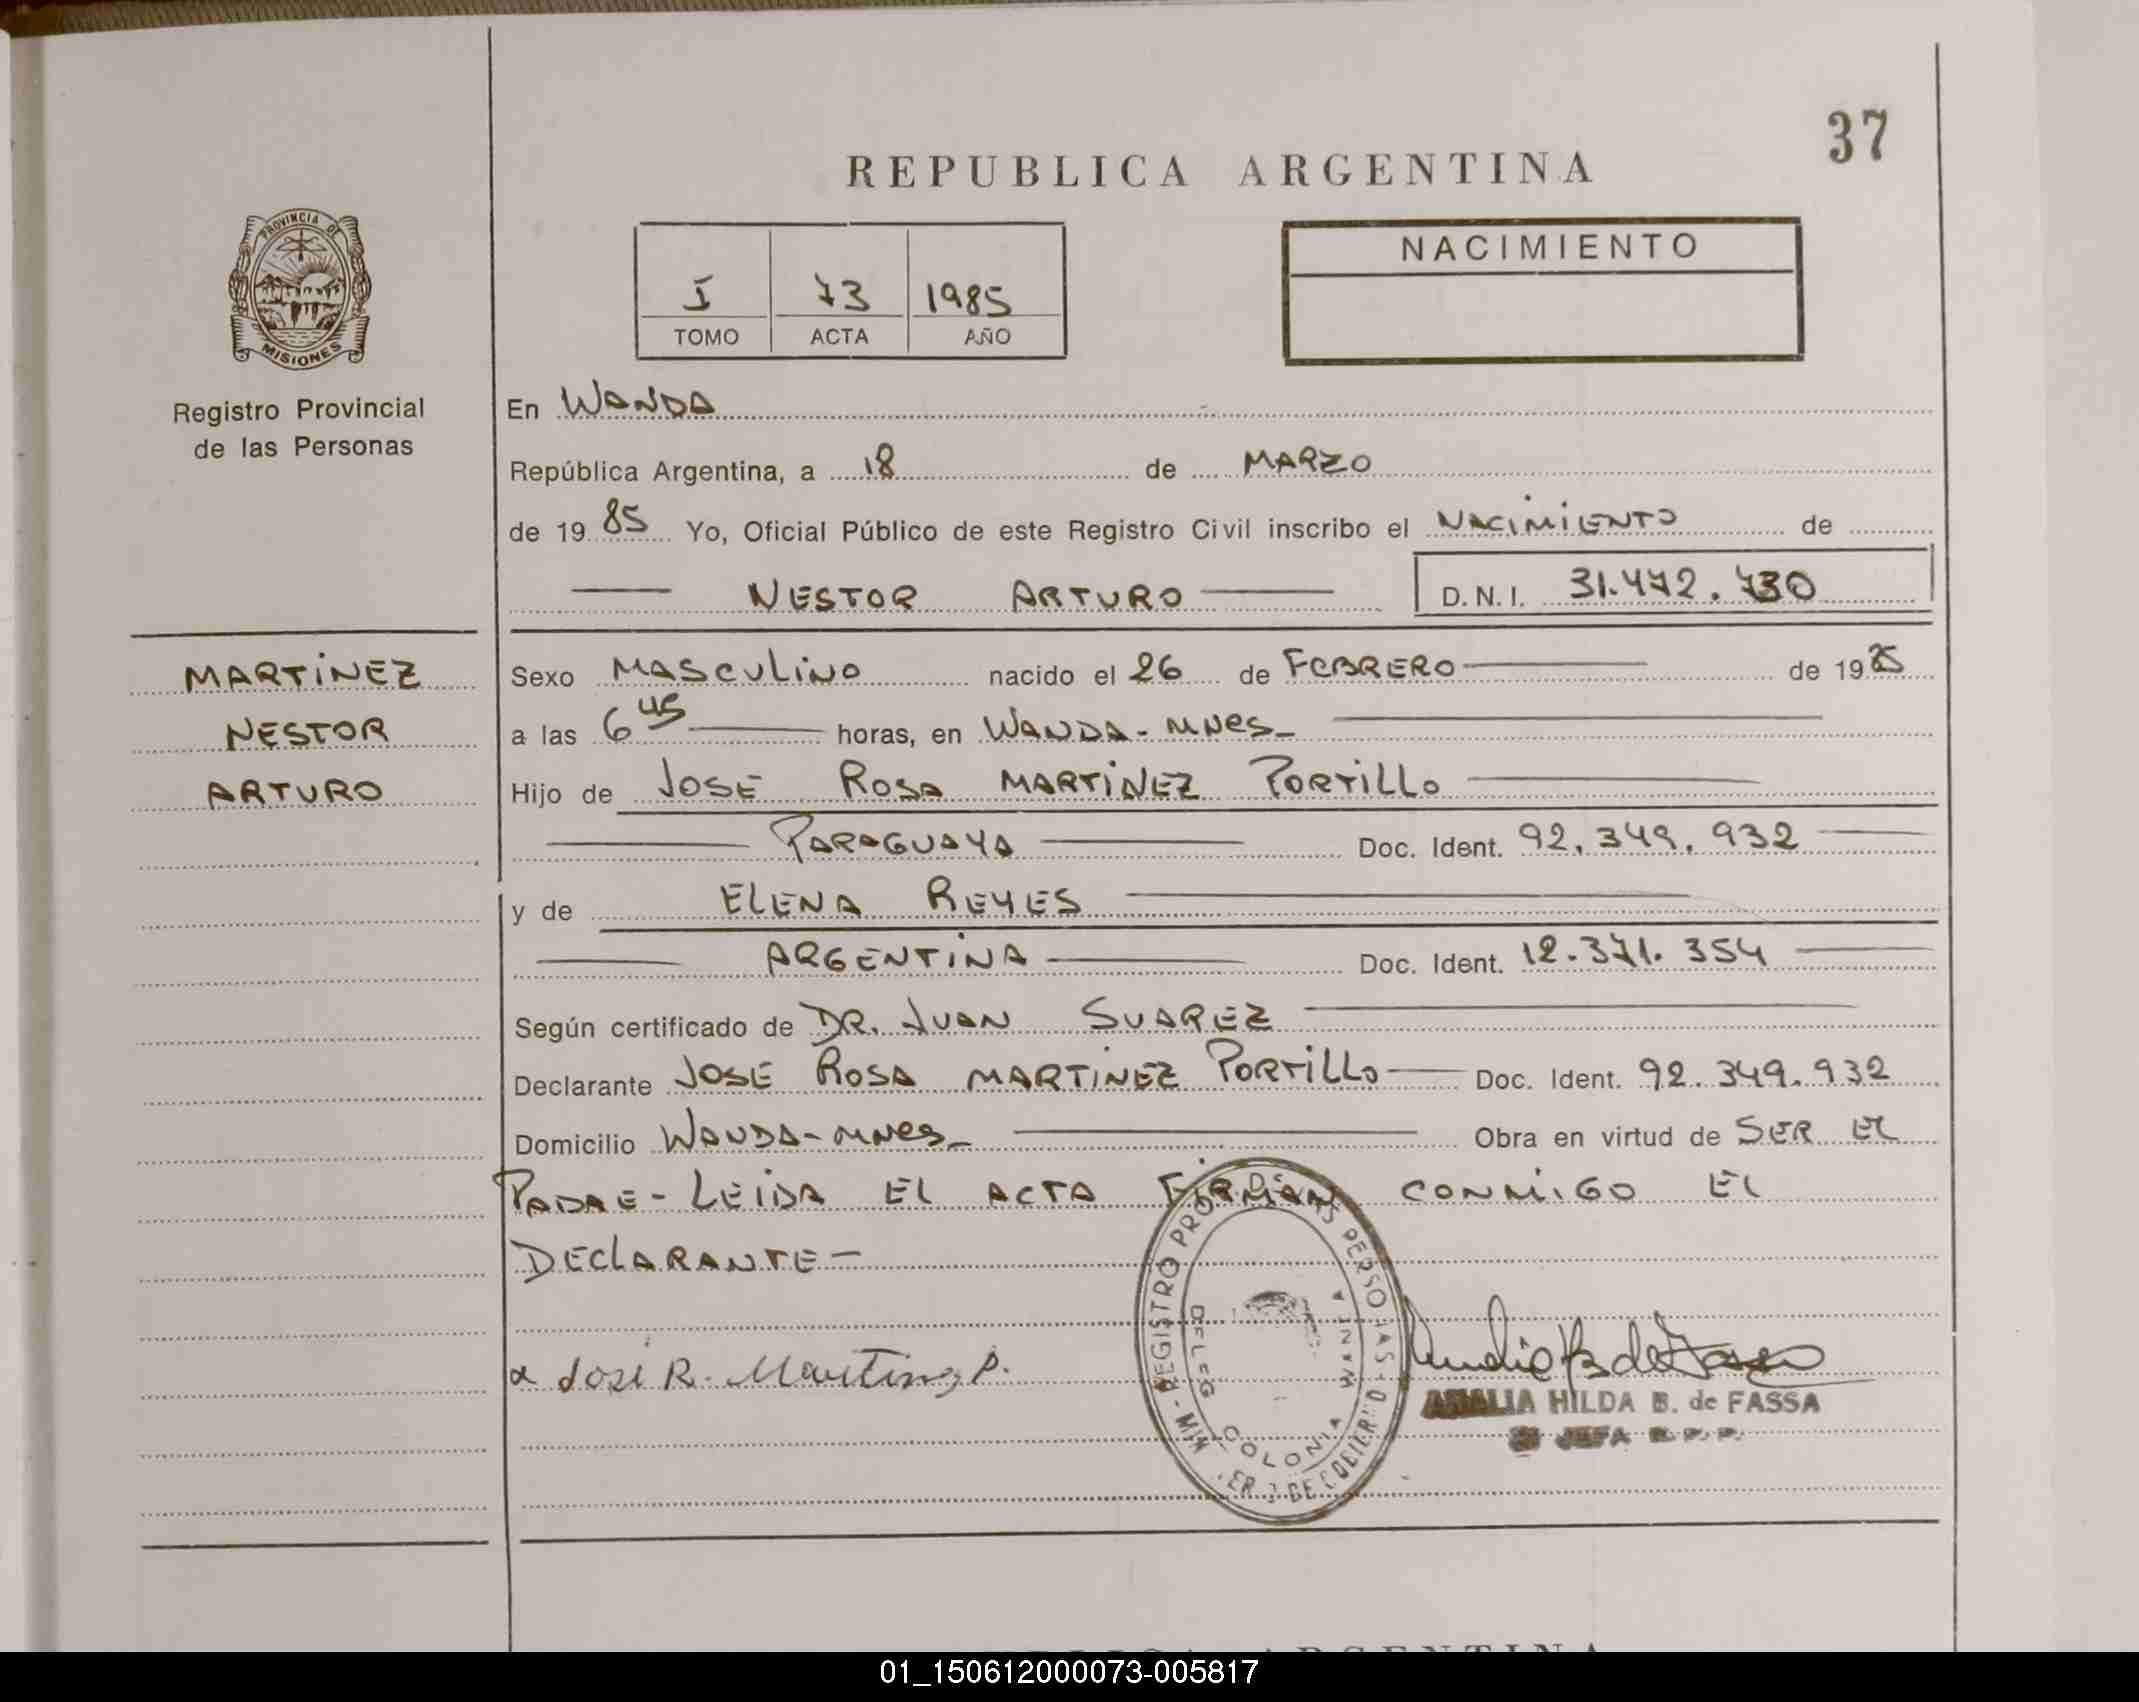 37
REPUBLICA ARGENTINA
PROVINCIA DE
MISIONES
Registro Provincial
de las Personas
I 73 1985
TOMO ACTA AÑO
NACIMIENTO
En WANDA
República Argentina, a 18 de MARZO
de 19 85 Yo, Oficial Público de este Registro Civil inscribo el NACIMIENTO de
NESTOR ARTURO D.N.I. 31.472.730
MARTINEZ
NESTOR
ARTURO
Sexo MASCULINO nacido el 26 de FEBRERO de 1985
a las 6 45 horas, en WANDA - MNES_
Hijo de JOSE ROSA MARTINEZ PORTILLO
PARAGUAYA Doc. Ident. 92.349.932
y de ELENA REYES
ARGENTINA Doc. Ident. 12.371.354
Según certificado de DR. JUAN SUAREZ
Declarante JOSE ROSA MARTINEZ PORTILLO Doc. Ident. 92.349.932
Domicilio WANDA - MNES_ Obra en virtud de SER EL
PADRE - LEIDA EL ACTA FIRMAN CONMIGO EL
DECLARANTE -
José R. Martinez P.
REGISTRO
COLONIA WANDA
AMALIA HILDA B. de FASSA
JEFA R.P.P.
01_150612000073-005817